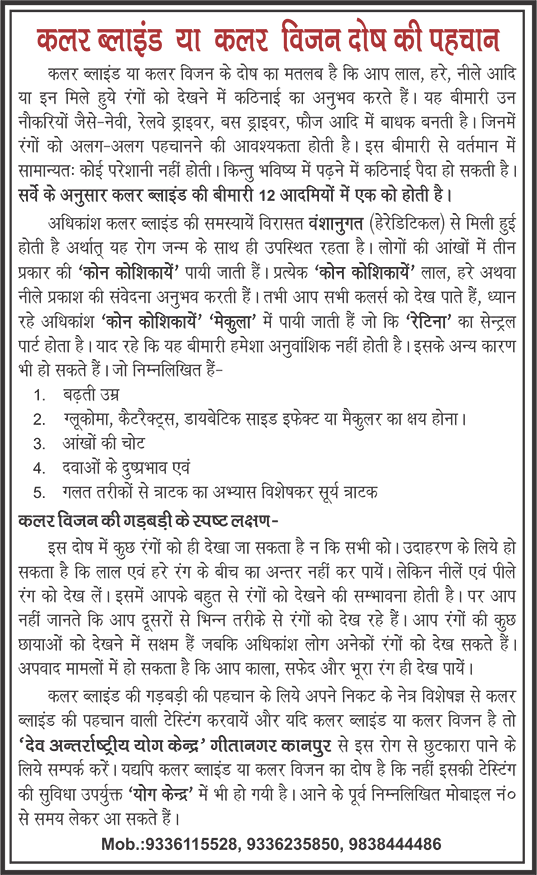 कलर ब्लाइंड या कलर विजन दोष की पहचान
कलर ब्लाइंड या कलर विजन के दोष का मतलब है कि आप लाल, हरे, नीले आदि
या इन मिले हुये रंगों को देखने में कठिनाई का अनुभव करते हैं। यह बीमारी उन
नौकरियों जैसे-नेवी, रेलवे ड्राइवर, बस ड्राइवर, फौज आदि में बाधक बनती है। जिनमें
रंगों को अलग-अलग पहचानने की आवश्यकता होती है। इस बीमारी से वर्तमान में
सामान्यतः कोई परेशानी नहीं होती। किन्तु भविष्य में पढ़ने में कठिनाई पैदा हो सकती है।
सर्वे के अनुसार कलर ब्लाइंड की बीमारी 12 आदमियों में एक को होती है।
अधिकांश कलर ब्लाइंड की समस्यायें विरासत वंशानुगत (हेरेडिटिकल) से मिली हुई
होती है अर्थात् यह रोग जन्म के साथ ही उपस्थित रहता है। लोगों की आंखों में तीन
प्रकार की ‘कोन कोशिकायें’ पायी जाती हैं। प्रत्येक ‘कोन कोशिकायें’ लाल, हरे अथवा
नीले प्रकाश की संवेदना अनुभव करती हैं। तभी आप सभी कलर्स को देख पाते हैं, ध्यान
रहे अधिकांश ‘कोन कोशिकायें’ ‘मेकुला’ में पायी जाती हैं जो कि ‘रेटिना’ का सेन्ट्रल
पार्ट होता है। याद रहे कि यह बीमारी हमेशा अनुवांशिक नहीं होती है। इसके अन्य कारण
भी हो सकते हैं। जो निम्नलिखित हैं-
1. बढ़ती उम्र
2. ग्लूकोमा, कैटरैक्ट्स, डायबेटिक साइड इफेक्ट या मैकुलर का क्षय होना।
3. आंखों की चोट
4. दवाओं के दुष्प्रभाव एवं
5. गलत तरीकों से त्राटक का अभ्यास विशेषकर सूर्य त्राटक
कलर विजन की गड़बड़ी के स्पष्ट लक्षण-
इस दोष में कुछ रंगों को ही देखा जा सकता है न कि सभी को। उदाहरण के लिये हो
सकता है कि लाल एवं हरे रंग के बीच का अन्तर नहीं कर पायें। लेकिन नीलें एवं पीले
रंग को देख लें। इसमें आपके बहुत से रंगों को देखने की सम्भावना होती है। पर आप
नहीं जानते कि आप दूसरों से भिन्न तरीके से रंगों को देख रहे हैं। आप रंगों की कुछ
छायाओं को देखने में सक्षम हैं जबकि अधिकांश लोग अनेकों रंगों को देख सकते हैं।
अपवाद मामलों में हो सकता है कि आप काला, सफेद और भूरा रंग ही देख पायें।
कलर ब्लाइंड की गड़बड़ी की पहचान के लिये अपने निकट के नेत्र विशेषज्ञ से कलर
ब्लाइंड की पहचान वाली टेस्टिंग करवायें और यदि कलर ब्लाइंड या कलर विजन है तो
‘देव अन्तर्राष्ट्रीय योग केन्द्र’ गीतानगर कानपुर से इस रोग से छुटकारा पाने के
लिये सम्पर्क करें। यद्यपि कलर ब्लाइंड या कलर विजन का दोष है कि नहीं इसकी टेस्टिंग
की सुविधा उपर्युक्त ‘योग केन्द्र’ में भी हो गयी है। आने के पूर्व निम्नलिखित मोबाइल नं०
से समय लेकर आ सकते हैं।
Mob.:9336115528, 9336235850, 9838444486